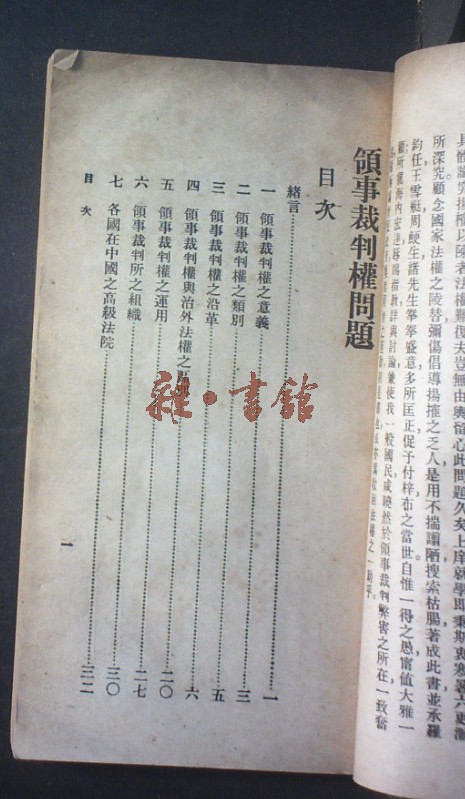 法權難復夫豈無由輿留心此問題久矣上庠就學即秉斯衷寒暑六更
所深究顧念國家法權之陵替彌傷倡導揚搉之乏人是用不揣譾陋搜索枯腸著成此書並承羅
鈞任王雪艇周鯁生諸先生拳拳盛意多所匡正促予付梓布之當世自惟一得之愚甯值大雅一
顧所冀海內宏達辱賜指教詳與討論兼使我一般國民咸曉然於領事裁判弊害之所在一致奮
之一助乎。
領事裁判權問題
目次
緒言
一 領事裁判權之意義 一
二 領事裁判權之類別 三
三 領事裁判權之沿革 五
四 領事裁判權與治外法權之 六
五 領事裁判權之運用 二〇
六 領事裁判所之組織 二七
七 各國在中國之高級法院 三〇
三二
目次
一
雜·書館